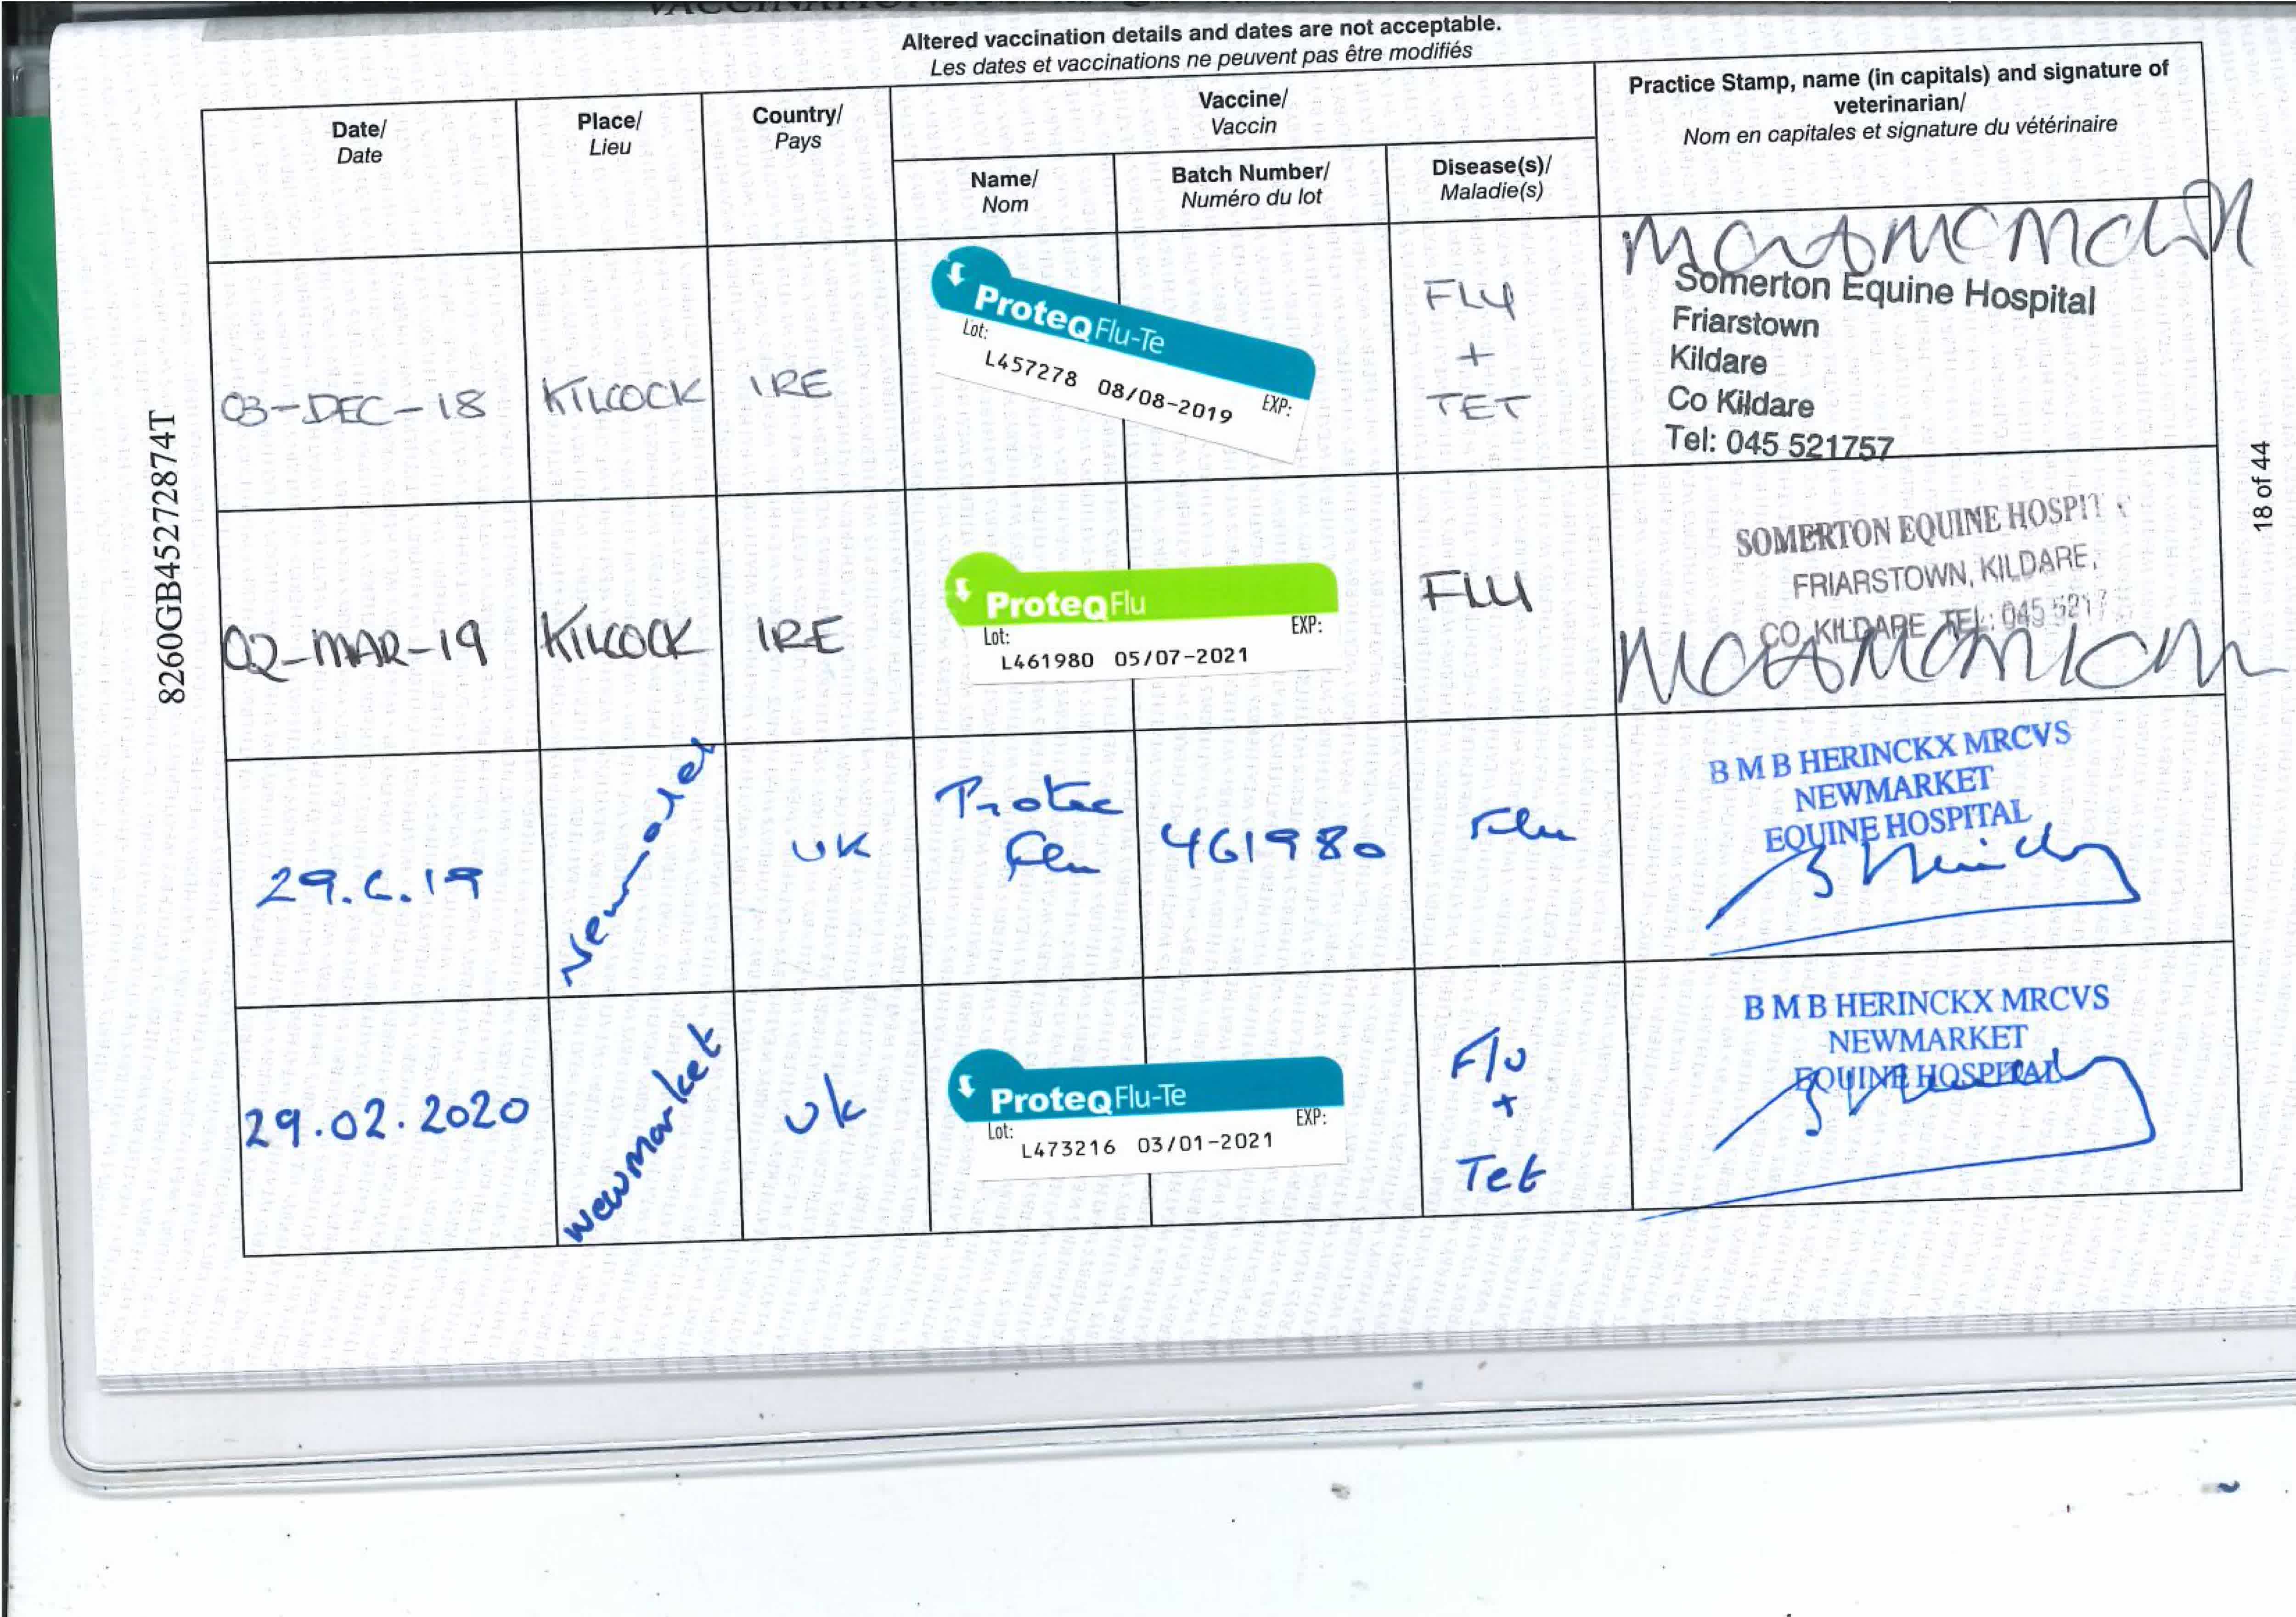 Altered vaccination details and dates are not acceptable.
Les dates et vaccinations ne peuvent pas être modifiés
Date/
Date
Place/
Lieu
Country/
Pays
Vaccine/
Vaccin
Name/
Nom
Batch Number/
Numéro du lot
Disease(s)/
Maladie(s)
Practice Stamp, name (in capitals) and signature of
veterinarian/
Nom en capitales et signature du vétérinaire
03-DEC-18
KILCOCK
IRE
ProteqFlu-Te
Lot:
EXP:
L457278 08/08-2019
FLU
+
TET
Somerton Equine Hospital
Friarstown
Kildare
Co Kildare
Tel: 045 521757
02-MAR-19
KILCOCK
IRE
ProteqFlu
Lot:
EXP:
L461980 05/07-2021
FLU
SOMERTON EQUINE HOSPIT
FRIARSTOWN, KILDARE,
CO. KILDARE TEL: 045 5217
29.6.19
UK
Protec
Flu
461980
Flu
B M B HERINCKX MRCVS
NEWMARKET
EQUINE HOSPITAL
29.02.2020
Newmarket
Uk
ProteqFlu-Te
Lot:
EXP:
L473216 03/01-2021
Flu
+
Tet
B M B HERINCKX MRCVS
NEWMARKET
EQUINE HOSPITAL
8260GB452728874T
18 of 44